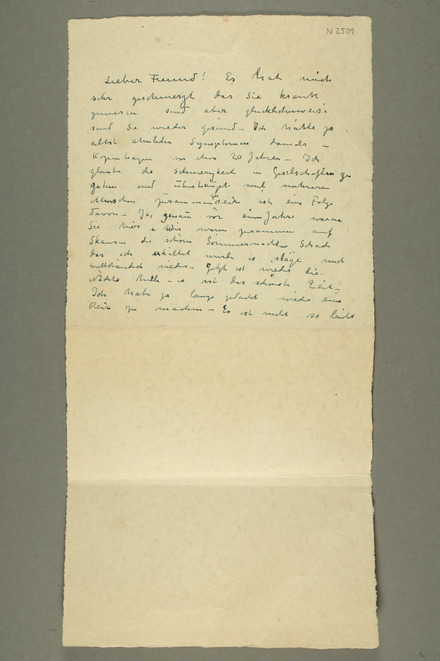 N 2501
Lieber Freund! Es hat mich
sehr geschmerzt das Sie krank
gewesen sind aber glücklicherweise
sind Sie wieder gesund – Ich hatte ja
selbst ähnliche Symptome damals in
Kopenhagen vor etwa 20 Jahren – Ich
glaube die Schwierigkeit in Gesellschaften zu
gehen und überhaupt mit mehreren
Menschen zusammen zu sein ist eine Folge
davon – Ja, genau vor einem Jahre waren
Sie hier – Wir waren zusammen auf
Skansen die schöne Sommernacht – Schade
das ich erkältet wurde und
vollständig – Jetzt ist wieder die
Nächte helle – es ist das schönste Zeit –
Ich habe ja lange gedacht wieder eine
Reise zu machen – Es ist nicht so leicht